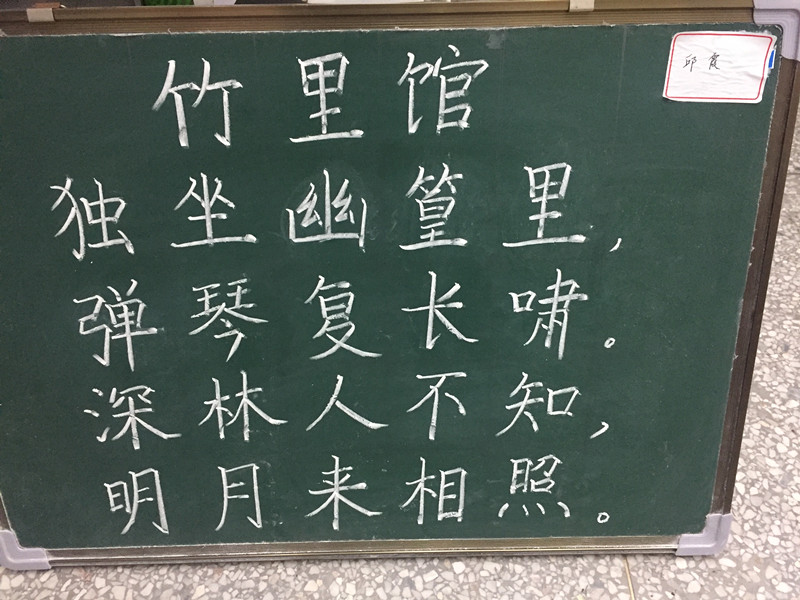 竹里馆
邱霞
独坐幽篁里,
弹琴复长啸。
深林人不知,
明月来相照。